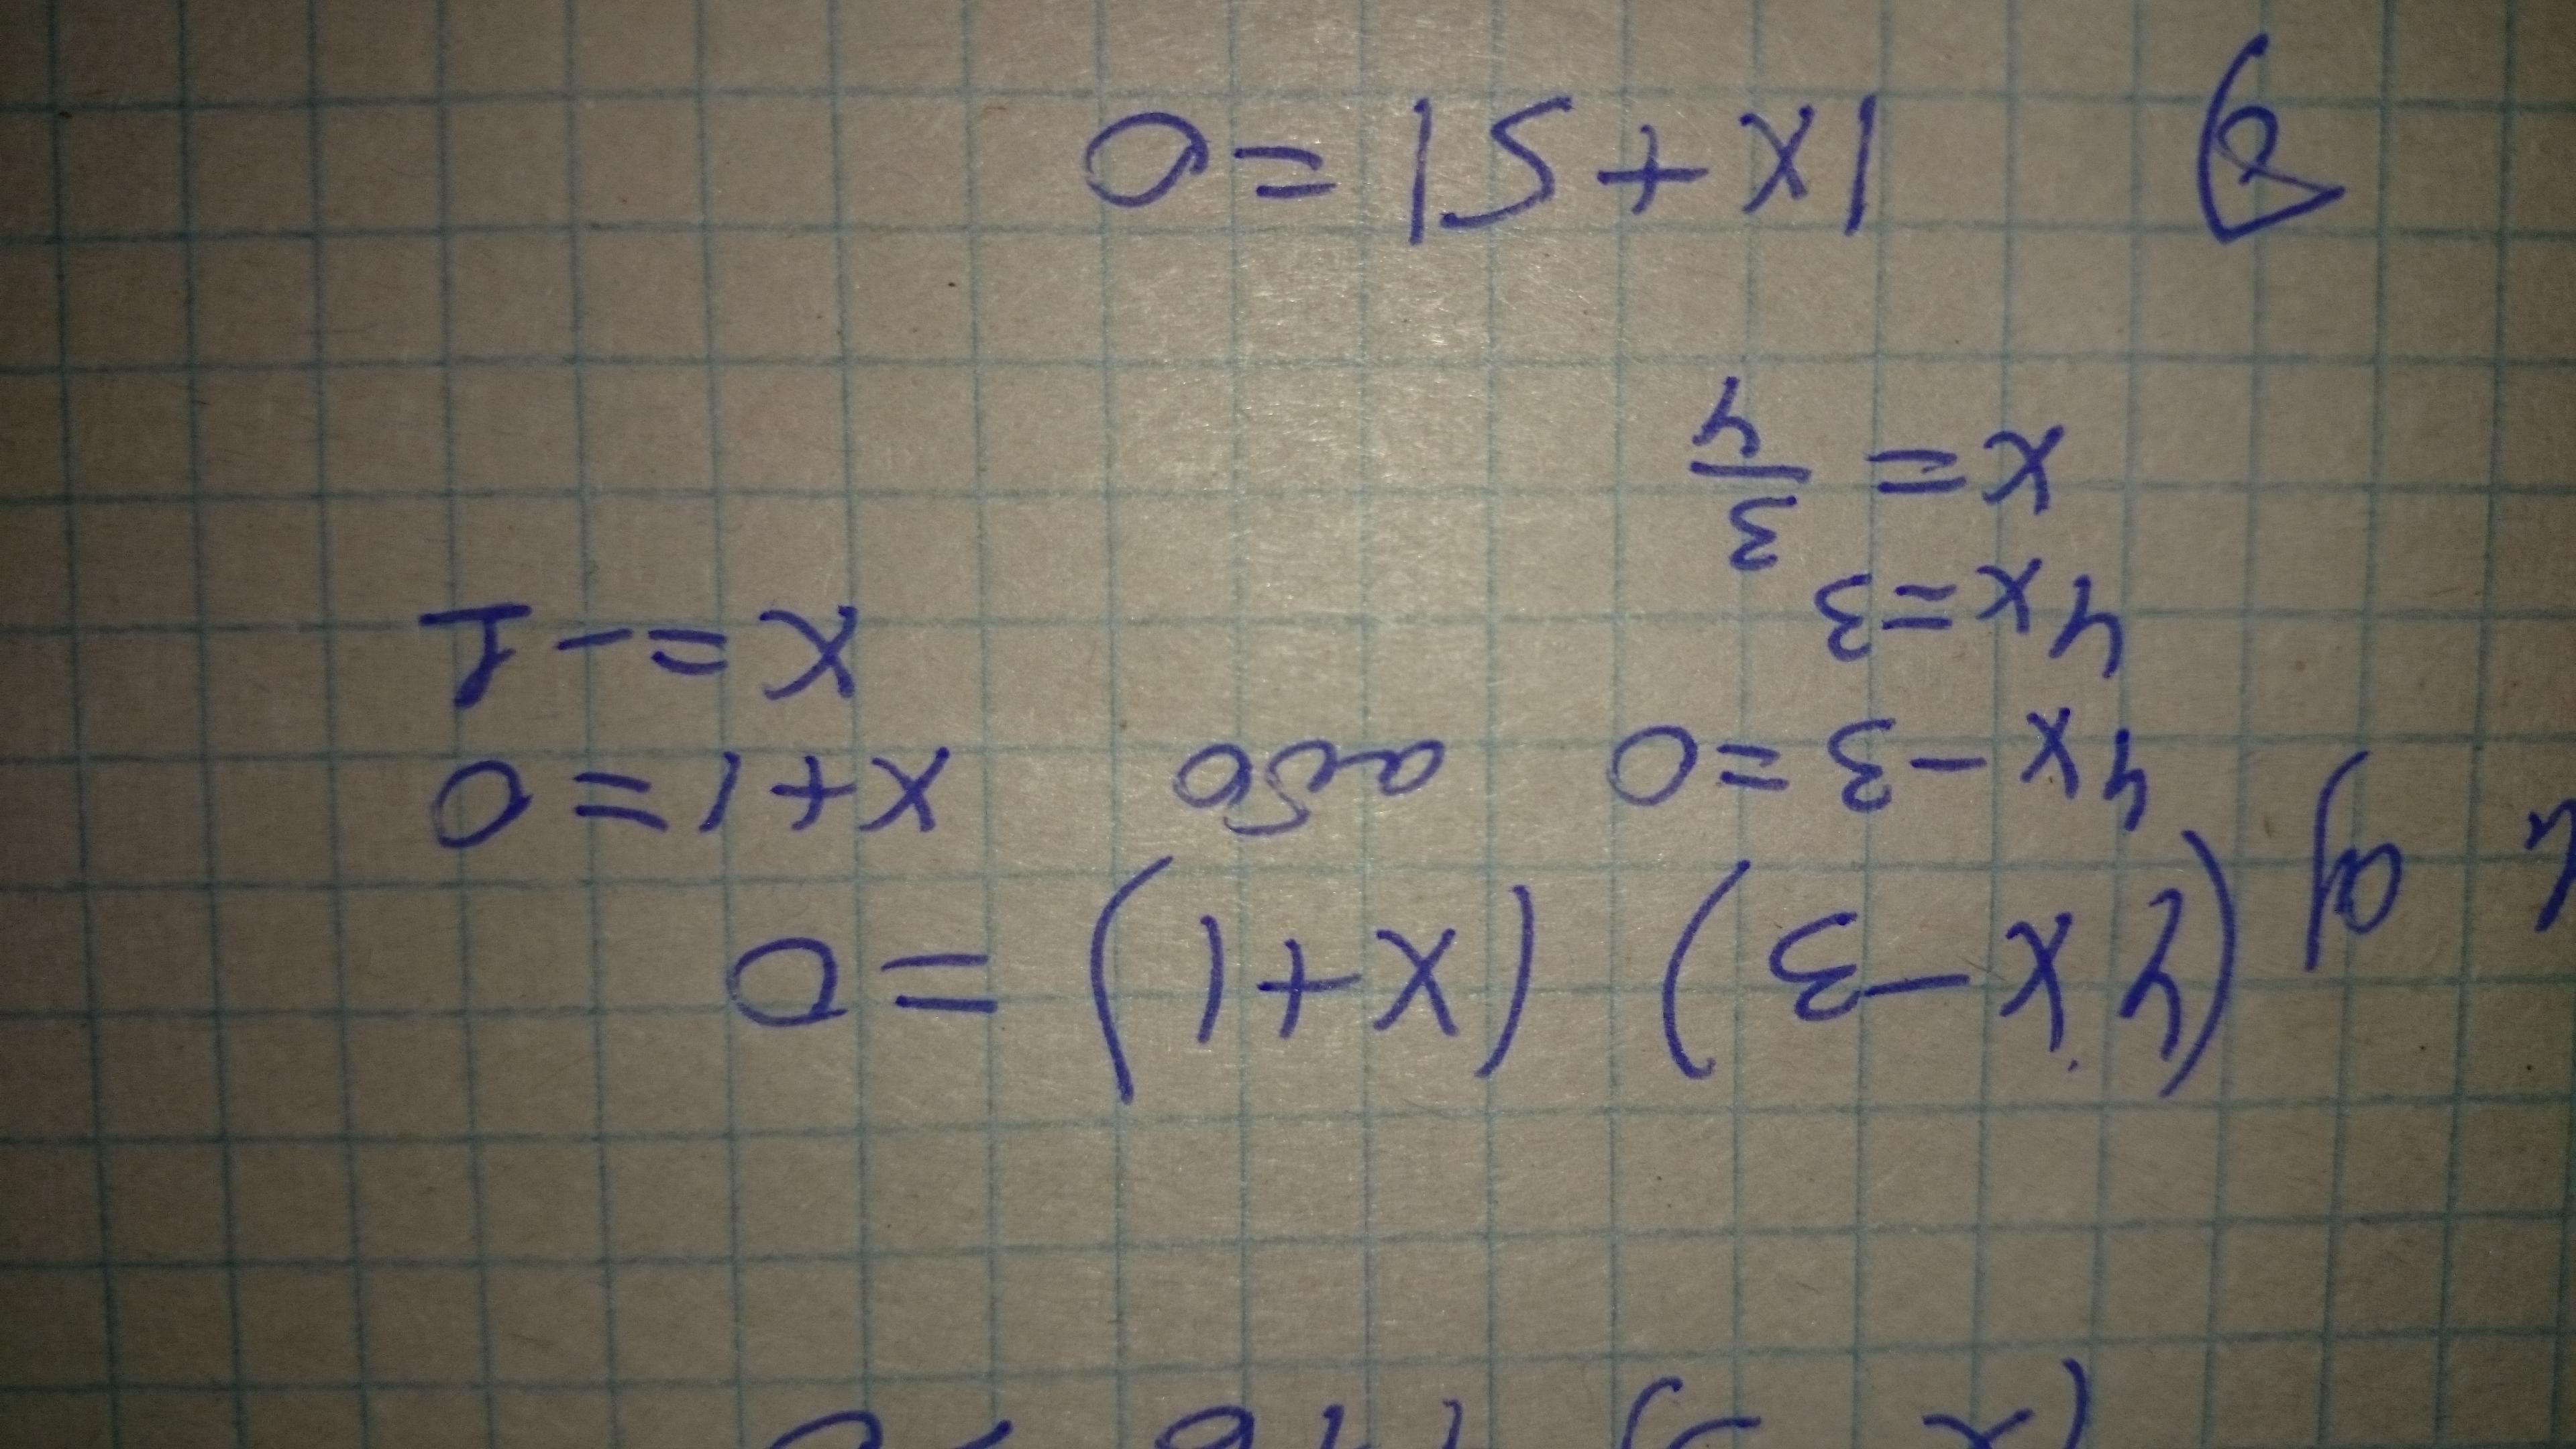 a) (4x-3) (x+1) =0
4x-3=0 або x+1=0
4x=3 x=-1
x= 3/4
|x+5|=0